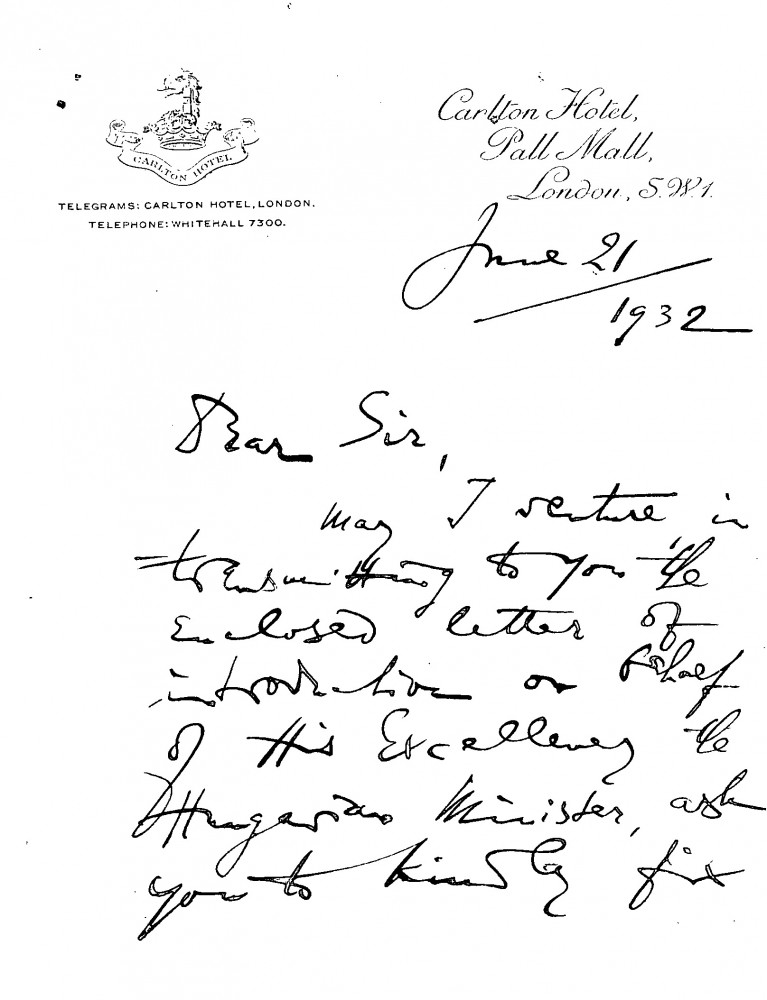 CARLTON HOTEL
TELEGRAMS: CARLTON HOTEL, LONDON.
TELEPHONE: WHITEHALL 7300.
Carlton Hotel,
Pall Mall,
London, S.W.1.
June 21
1932
Dear Sir,
May I venture in
transmitting to you the
enclosed letter of
introduction on behalf
of His Excellency the
Hungarian Minister, ask
you to kindly fix